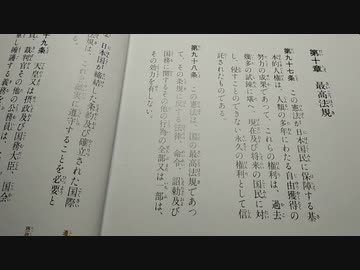 第十章　最高法規
第九十七条　この憲法が日本国民に保障する基
本的人権は、人類の多年にわたる自由獲得の
努力の成果であつて、これらの権利は、過去
幾多の試錬に堪へ、現在及び将来の国民に対
し、侵すことのできない永久の権利として信
託されたものである。
第九十八条　この憲法は、国の最高法規であつ
て、その条規に反する法律、命令、詔勅及び
国務に関するその他の行為の全部又は一部は、
その効力を有しない。
日本国が締結した条約及び確立された国際
規は、これを誠実に遵守することを必要と
十九条　天皇又は摂政及び国務大臣、国会
裁判官その他の公務員は、
擁護する義務